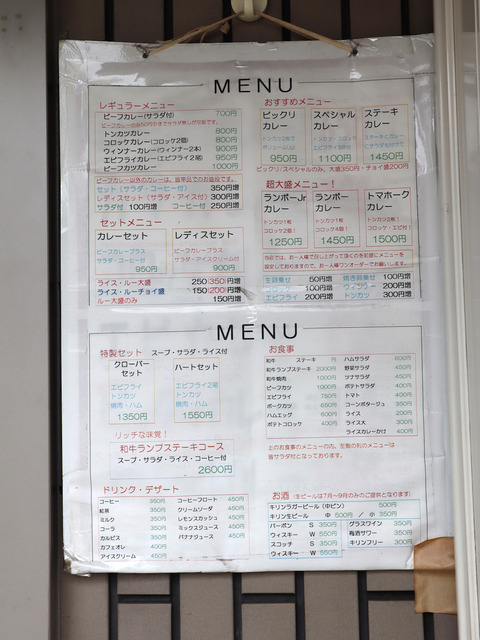 MENU
レギュラーメニュー
ビーフカレー(サラダ付) 700円
トンカツカレー 800円
コロッケカレー(コロッケ2個) 800円
ウィンナーカレー(ウィンナー2本) 900円
エビフライカレー(エビフライ2尾) 950円
ビーフカツカレー 1000円
ビーフカレー以外のカレーは、皆単品でのお値段です。
セット(サラダ・コーヒー付) 350円増
レディスセット(サラダ・アイス付) 300円増
サラダ付 100円増 コーヒー付 250円増
セットメニュー
カレーセット
ビーフカレープラス
サラダ・コーヒー付
950円
レディスセット
ビーフカレープラス
サラダ・アイスクリーム付
900円
ライス・ルー大盛 250(350)円増
ライス・ルーチョイ盛 150(200)円増
ルー大盛のみ 150円増
おすすめメニュー
ビックリカレー
950円
スペシャルカレー
1100円
ステーキカレー
1450円
ビックリ/スペシャルのみ、大盛350円・チョイ盛200円
超大盛メニュー!
ランボーJrカレー
トンカツ1枚
コロッケ2個!
1250円
ランボーカレー
トンカツ1枚
コロッケ4個!
1450円
トマホークカレー
トンカツ2枚!
コロッケ・エビ付!
1500円
生卵乗せ 50円増
コロッケ 100円増
エビフライ 200円増
焼き卵乗せ 100円増
ウィンナー 200円増
トンカツ 300円増
MENU
特製セット スープ・サラダ・ライス付
クローバーセット
エビフライ
トンカツ
焼肉・ハム
1350円
ハートセット
エビフライ2尾
トンカツ
焼肉・ハム
1550円
リッチな味覚!
和牛ランプステーキコース
スープ・サラダ・ライス・コーヒー付
2600円
お食事
和牛ランプステーキ 2000円
和牛焼肉 1000円
ビーフカツ 1000円
エビフライ 750円
ポークカツ 650円
ハムエッグ 600円
ポテトコロッケ 400円
ハムサラダ 600円
野菜サラダ 450円
ツナサラダ 450円
ポテトサラダ 400円
トマト 400円
コーンポタージュ 350円
ライス 200円
ライス大 300円
ライスカレーかけ 400円
上のお食事のメニューの内、左側の列のメニューは
皆サラダ付となっております。
ドリンク・デザート
コーヒー 350円
紅茶 350円
ミルク 350円
コーラ 350円
カルピス 350円
カフェオレ 400円
アイスクリーム 450円
コーヒーフロート 450円
クリームソーダ 450円
レモンスカッシュ 450円
ミックスジュース 450円
バナナジュース 450円
お酒 (生ビールは7月~9月のみのご提供となります)
キリンラガービール(中ビン) 500円
キリン生ビール 中 500円 / 小 350円
バーボン S 350円
ウィスキー W 550円
スコッチ S 350円
ウィスキー W 550円
グラスワイン 350円
梅酒サワー 350円
キリンフリー 300円